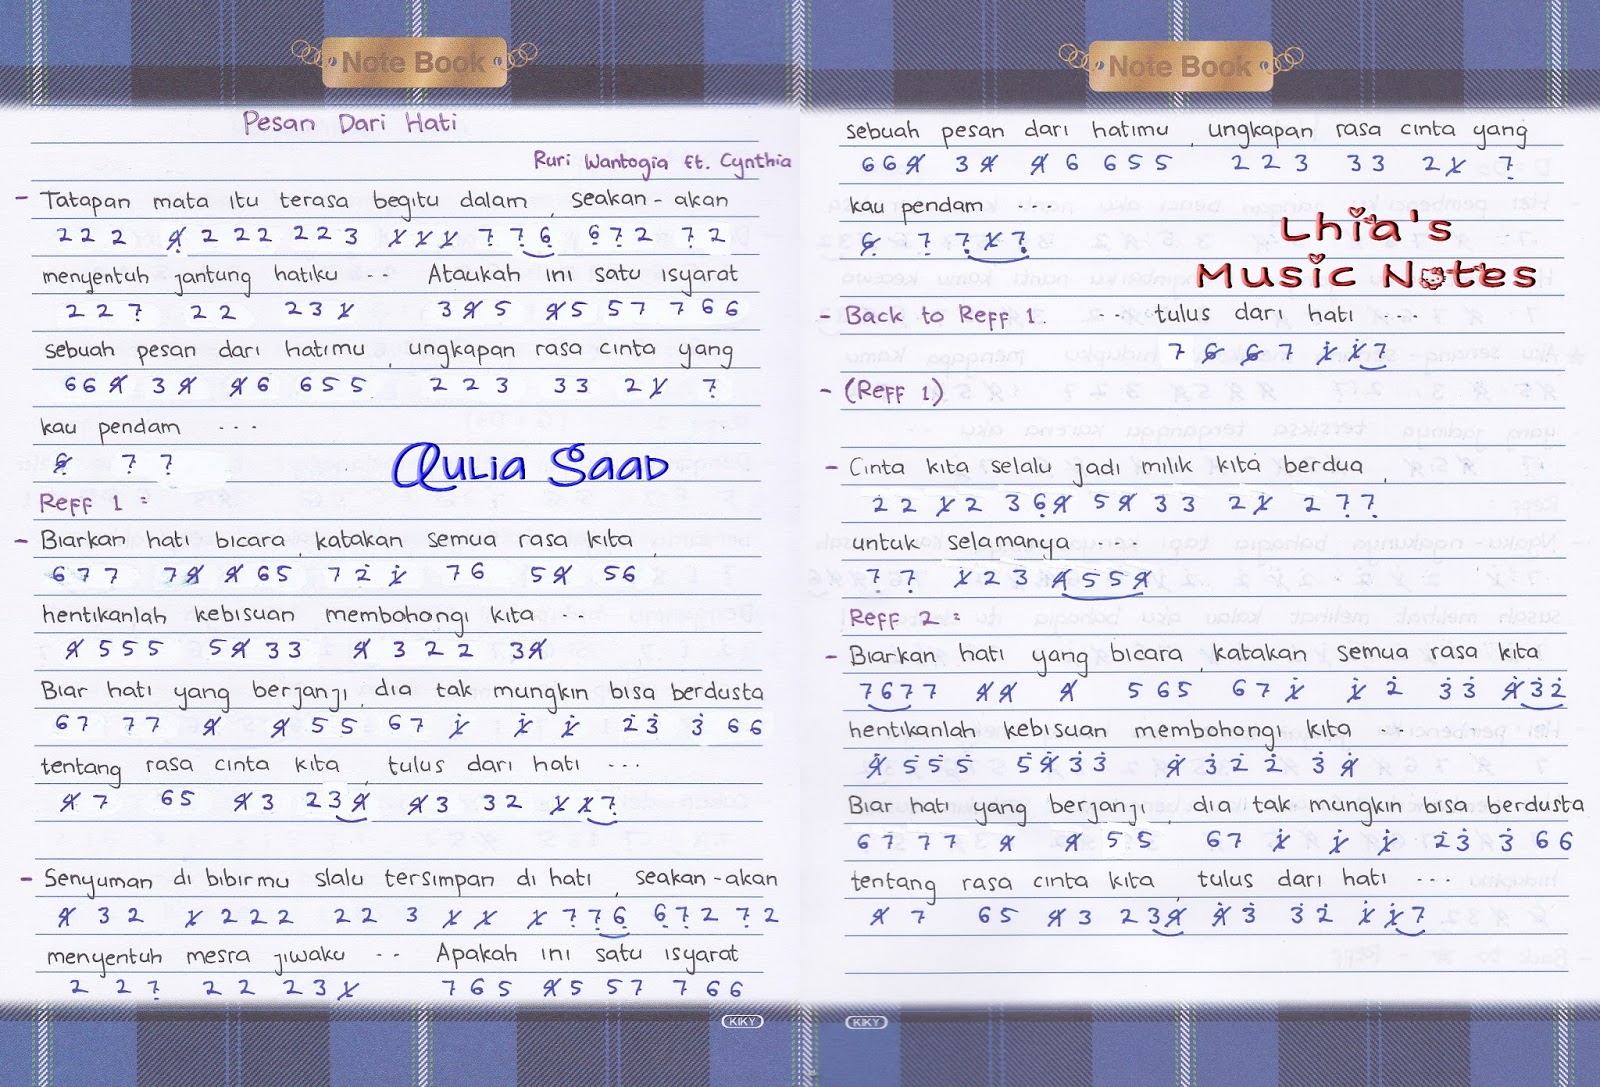 Note Book
Pesan Dari Hati
Ruri Wantogia ft. Cynthia
- Tatapan mata itu terasa begitu dalam, seakan-akan
2 2 2 4 2 2 2 2 2 3 1 1 1 7 7 6 6 7 2 7 2
menyentuh jantung hatiku ... Ataukah ini satu isyarat
2 2 7 2 2 2 3 1 3 4 5 4 5 5 7 7 6 6
sebuah pesan dari hatimu, ungkapan rasa cinta yang
6 6 4 3 4 4 6 6 5 5 2 2 3 3 3 2 1 7
kau pendam ...
6 7 7
Aulia Saad
Reff 1 :
- Biarkan hati bicara, katakan semua rasa kita,
6 7 7 7 4 4 6 5 7 2 1 7 6 5 4 5 6
hentikanlah kebisuan membohongi kita ...
4 5 5 5 5 4 3 3 4 3 2 2 3 4
Biar hati yang berjanji, dia tak mungkin bisa berdusta
6 7 7 7 4 4 5 5 6 7 1 1 1 2 3 3 6 6
tentang rasa cinta kita, tulus dari hati ...
4 7 6 5 4 3 2 3 4 4 3 3 2 1 1 7
- Senyuman di bibirmu slalu tersimpan di hati, seakan-akan
4 3 2 1 2 2 2 2 2 3 1 1 1 7 7 6 6 7 2 7 2
menyentuh mesra jiwaku ... Apakah ini satu isyarat
2 2 7 2 2 2 3 1 7 6 5 4 5 5 7 7 6 6
KIKY
Note Book
sebuah pesan dari hatimu, ungkapan rasa cinta yang
6 6 4 3 4 4 6 6 5 5 2 2 3 3 3 2 1 7
kau pendam ...
6 7 7 1 7
Lhia's
Music Notes
- Back to Reff 1. ... tulus dari hati ...
7 6 6 7 1 1 7
- (Reff 1)
- Cinta kita selalu jadi milik kita berdua,
2 2 1 2 3 6 4 5 4 3 3 2 1 2 7 7
untuk selamanya ...
7 7 1 2 3 4 5 5 4
Reff 2 :
- Biarkan hati yang bicara, katakan semua rasa kita
7 6 7 7 4 4 4 5 6 5 6 7 1 1 2 3 3 4 3 2
hentikanlah kebisuan membohongi kita ...
4 5 5 5 5 4 3 3 4 3 2 2 3 4
Biar hati yang berjanji, dia tak mungkin bisa berdusta
6 7 7 7 4 4 5 5 6 7 1 1 1 2 3 3 6 6
tentang rasa cinta kita, tulus dari hati ...
4 7 6 5 4 3 2 3 4 4 3 3 2 1 1 7
KIKY